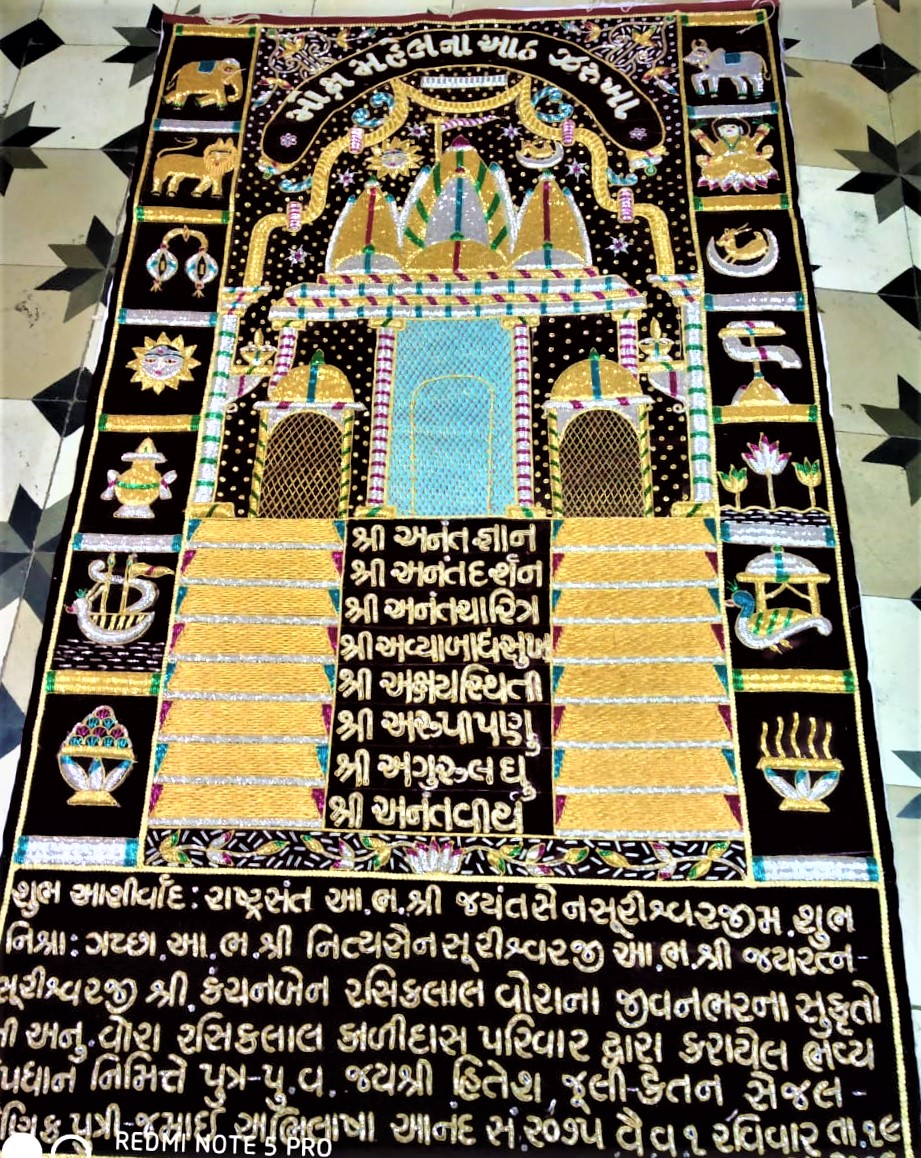 મોક્ષ મહેલના આઠ ઝરુખા
શ્રી અનંત જ્ઞાન
શ્રી અનંત દર્શન
શ્રી અનંતચારિત્ર
શ્રી અવ્યાબાધસુખ
શ્રી અક્ષયસ્થિતી
શ્રી અરૂપીપણુ
શ્રી અગુરુલઘુ
શ્રી અનંતવીર્ય
શુભ આશીર્વાદ: રાષ્ટ્રસંત આ.ભ.શ્રી જયંતસેનસૂરીશ્વરજીમ.શુભ
નિશ્રા: ગચ્છા.આ.ભ.શ્રી નિત્યસેનસૂરીશ્વરજી આ.ભ.શ્રી જયરત્ન-
સૂરીશ્વરજી શ્રી. કંચનબેન રસિકલાલ વોરાના જીવનભરના સુકૃતો
ની અનુ. વોરા રસિકલાલ કાળીદાસ પરિવાર દ્વારા કરાયેલ ભવ્ય
ઉપધાન નિમિત્તે પુત્ર-પુ.વ. જયશ્રી હિતેશ જૂલી-કેતન સેજલ-
પુત્રી-જમાઈ અભિલાષા આનંદ સં.૨૦૭૫ વૈ.વ.૧ રવિવાર તા.૧૯
REDMI NOTE 5 PRO